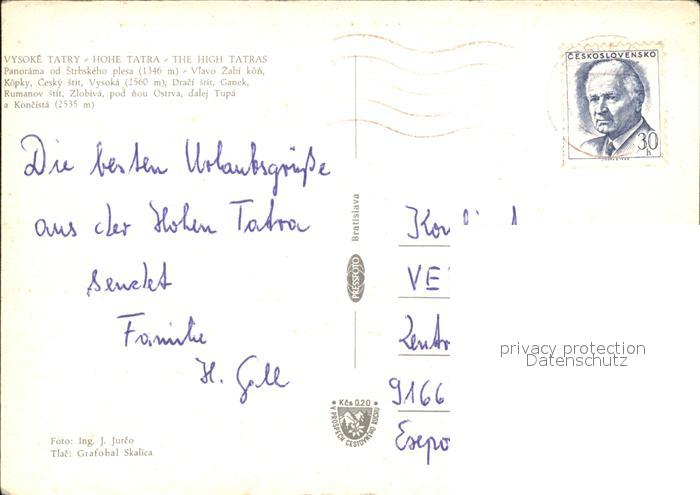 VYSOKÉ TATRY - HOHE TATRA - THE HIGH TATRAS
Panoráma od Štrbského plesa (1346 m) - Vľavo Žabí kôň,
Kôpky, Český štít, Vysoká (2560 m), Dračí štít, Ganek,
Rumanov štít, Zlobivá, pod ňou Ostrva, ďalej Tupá
a Končistá (2535 m)
ČESKOSLOVENSKO
30
h
Die besten Urlaubsgrüße
aus der Hohen Tatra
sendet
Familie
H. Goll
Bratislava
PRESSFOTO
VE
Zentr
9166
Kčs 0,20
V PROSPECH CESTOVNÉHO RUCHU
Foto: Ing. J. Jurčo
Tlač: Grafobal Skalica
privacy protection
Datenschutz